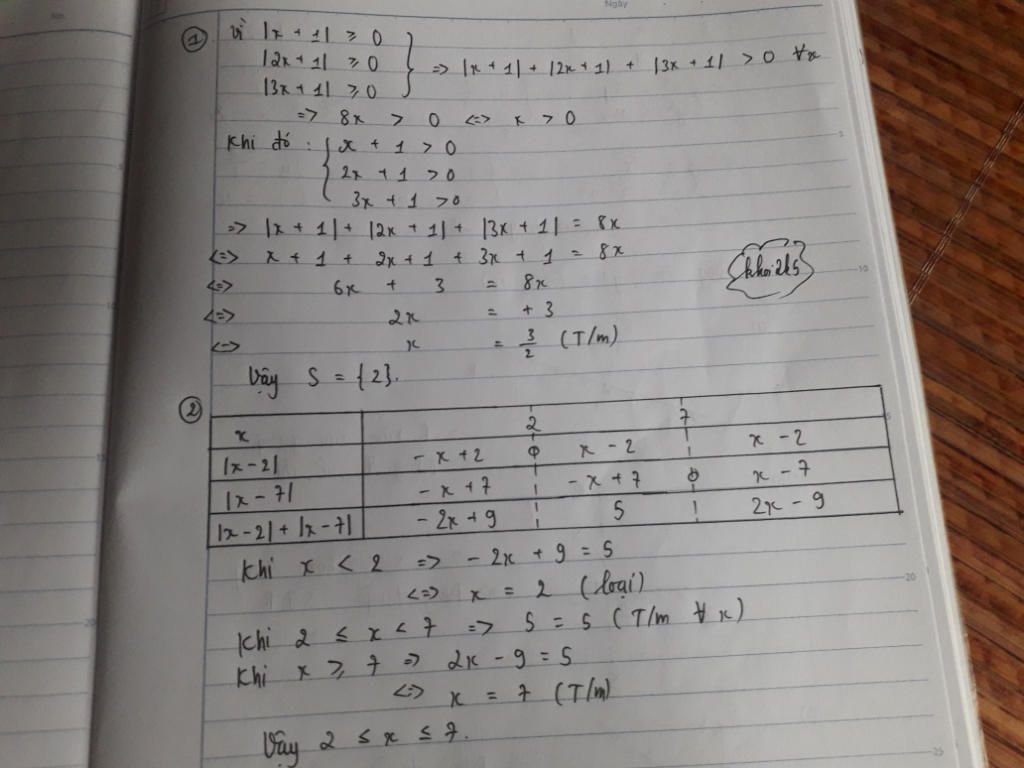 Ngày
① Vì |x + 1| ≥ 0
|2x + 1| ≥ 0
|3x + 1| ≥ 0
} => |x + 1| + |2x + 1| + |3x + 1| > 0 ∀x
=> 8x > 0 <=> x > 0
Khi đó : { x + 1 > 0
2x + 1 > 0
3x + 1 > 0
=> |x + 1| + |2x + 1| + |3x + 1| = 8x
<=> x + 1 + 2x + 1 + 3x + 1 = 8x
<=> 6x + 3 = 8x
<=> 2x = + 3
<=> x = 3/2 (T/m)
Vậy S = {2}.
②
x 2 7
|x - 2| - x + 2 0 x - 2 x - 2
|x - 7| - x + 7 - x + 7 0 x - 7
|x - 2| + |x - 7| - 2x + 9 5 2x - 9
Khi x < 2 => - 2x + 9 = 5
<=> x = 2 (loại)
Khi 2 ≤ x < 7 => 5 = 5 (T/m ∀ x)
Khi x ≥ 7 => 2x - 9 = 5
<=> x = 7 (T/m)
Vậy 2 ≤ x ≤ 7.